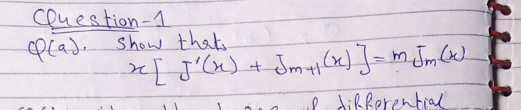 Question-1
Q(a). Show thats
x[ J'(x) + Jm+1(x) ] = m Jm(x)
of differential